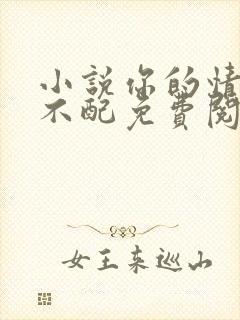 小說你的情
不配免費閱
女王來巡山